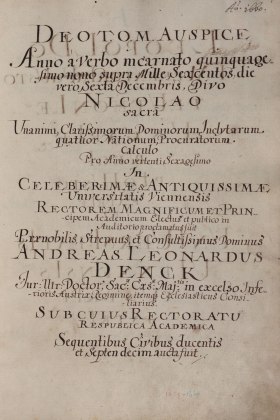 Ao. 1660.
DEO TOM. AUSPICE
Anno a Verbo incarnato quinquage
simo nono supra Mille Sexcentos, die
vero Sexta Decembris, Divo
NICOLAO
sacra
Unanimi Clarissimorum Dominorum Inclytarum
quattuor Nationum Procuratorum
Calculo
Pro Anno vertenti Sexagesimo
In
CELEBERIMÆ ANTIQUISSIMÆ
Universitatis Viennensis
RECTOREM MAGNIFICUM ET PRIN-
cipem Academicum Electus et publico in
Auditorio proclamatus fuit
Prænobilis Strenuus et Consultissimus Dominus
ANDREAS LEONARDUS
DENCK
Iur: Utr: Doctor, Sac: Cæs: Maj:tis in excelso Infe-
rioris Austriæ Regimine, itemq Ecclesiasticus Consi-
liarius.
SUB CUIUS RECTORATU
RESPUBLICA ACADEMICA
Sequentibus Civibus ducentis
et Septendecim aucta fuit